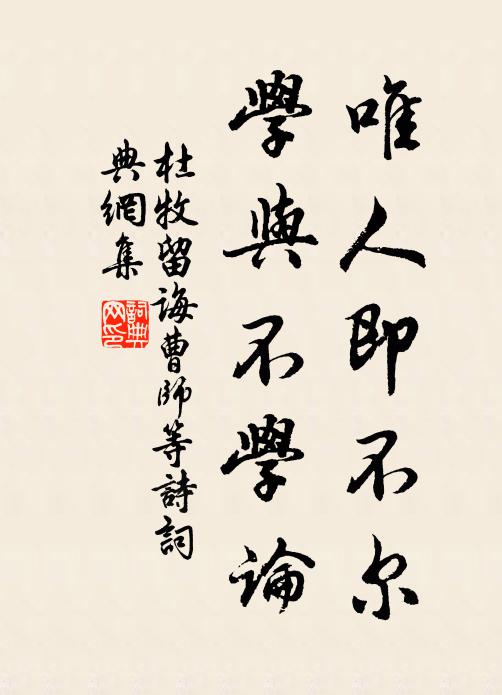 唯人即不尔
學與不學論
杜牧留誨曹師等詩詞
典網集
詞典
网印